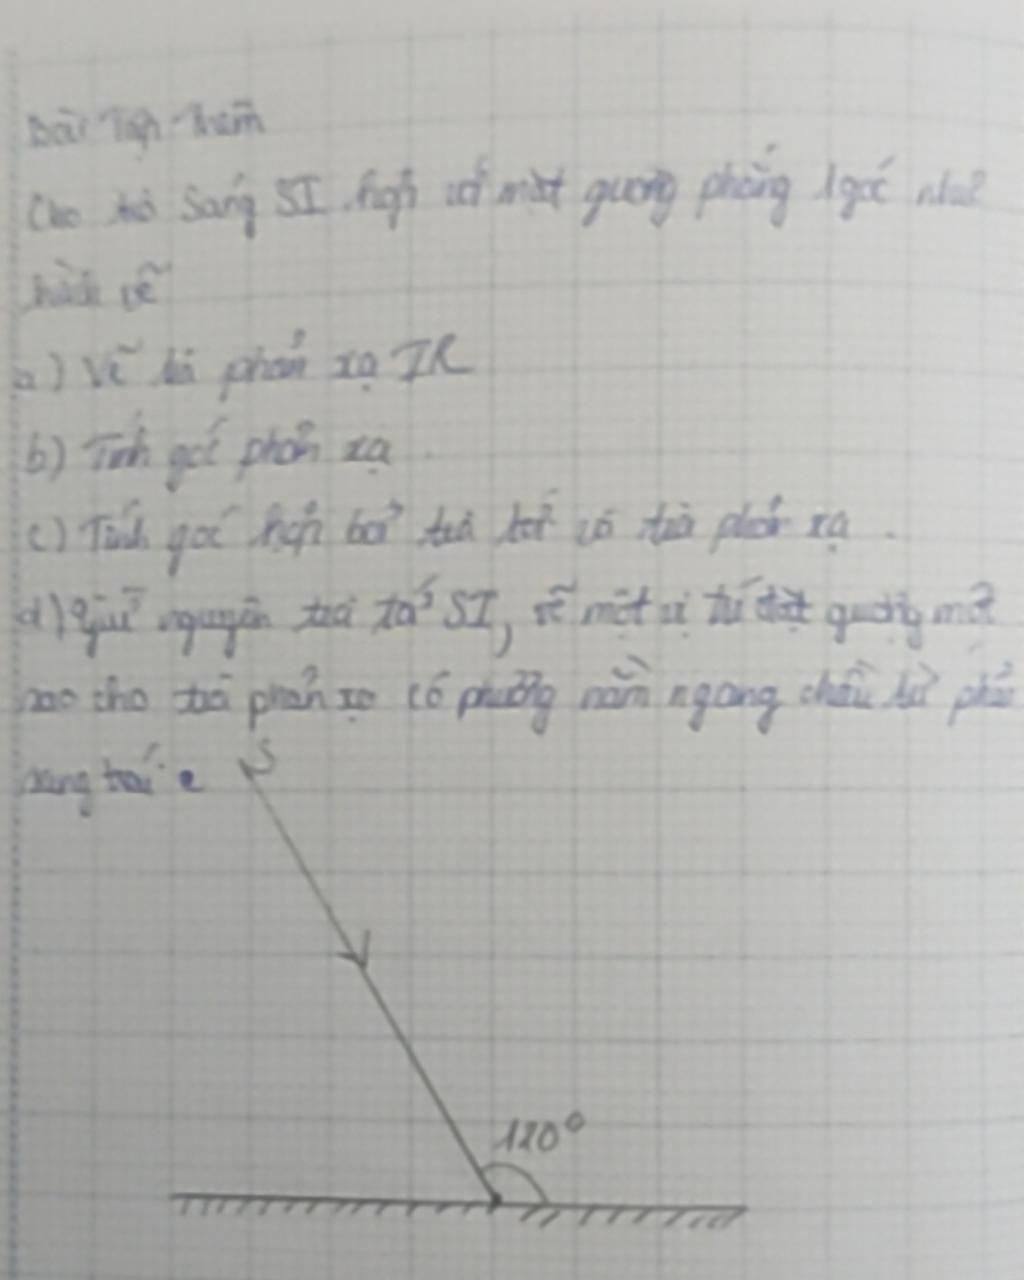 Bài Tập Thêm
Cho tia Sáng SI hợp với mặt gương phẳng 1 góc như
hình vẽ
a) Vẽ tia phản xạ IR
b) Tính góc phản xạ
c) Tính góc hợp bởi tia tới và tia phản xạ.
d) Giữ nguyên tia tới SI, vẽ một vị trí đặt gương mới
sao cho tia phản xạ có phương nằm ngang chiều từ phải
sang trái
S
120°